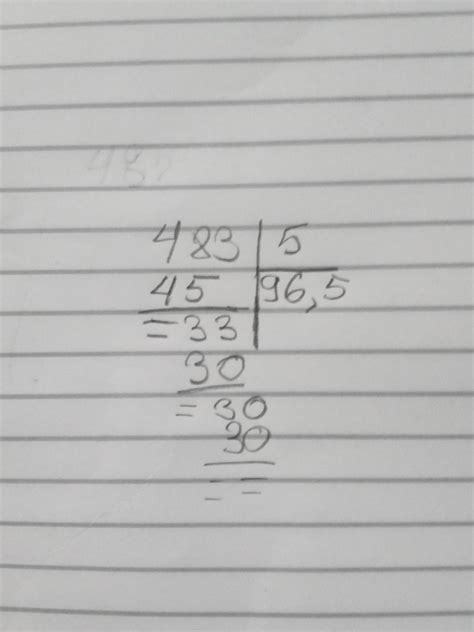 483 | 5
45 | 96,5
= 33
30
= 30
30
= =